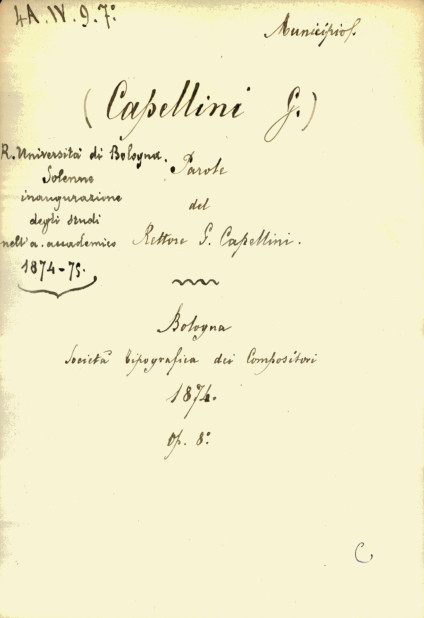 4A.IV.9.7°
Municipio f.
(Capellini G.)
R. Università di Bologna.
Solenne
inaugurazione
degli studi
nell'a. accademico
1874-75.
Parole
del
Rettore G. Capellini.
Bologna
Società tipografica dei Compositori
1874.
op. 8°.
C